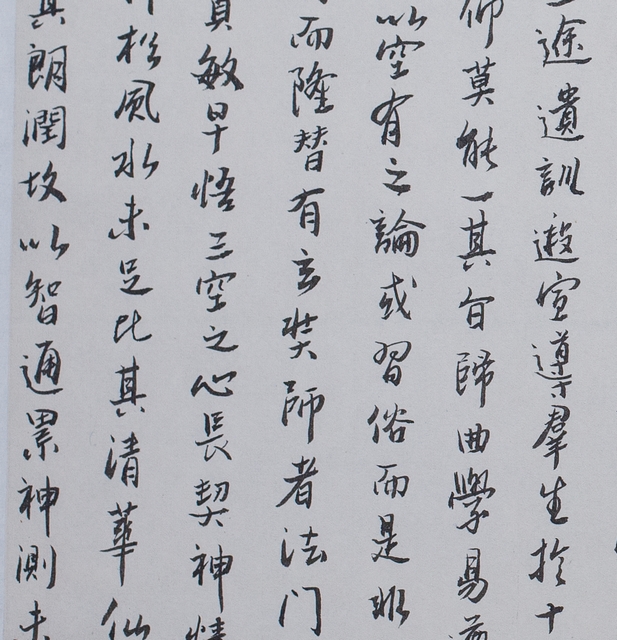 途遺訓遐宣導羣生於十
仰莫能一其旨歸曲學易
以空有之論或習俗而是非
而隆替有玄奘師者法门
貞敏早悟三空之心長契神情
松風水未足比其清華仙
其朗潤故以智通累神測未